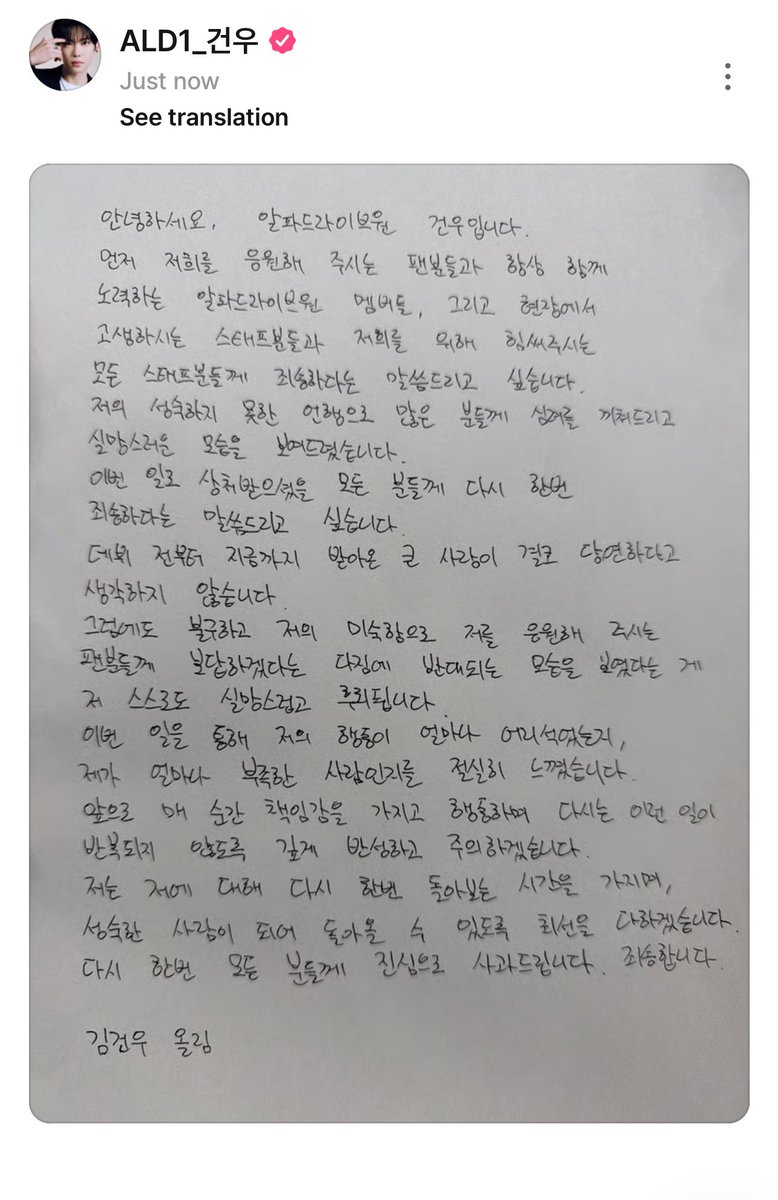 ALD1_건우
Just now
See translation
안녕하세요, 알파드라이브원 건우입니다.
먼저 저희를 응원해 주시는 팬분들과 항상 함께
노력하는 알파드라이브원 멤버들, 그리고 현장에서
고생하시는 스태프분들과 저희를 위해 힘써주시는
모든 스태프분들께 죄송하다는 말씀드리고 싶습니다.
저의 성숙하지 못한 언행으로 많은 분들께 심려를 끼쳐드리고
실망스러운 모습을 보여드렸습니다.
이번 일로 상처받으셨을 모든 분들께 다시 한번
죄송하다는 말씀드리고 싶습니다.
데뷔 전부터 지금까지 받아온 큰 사랑이 결코 당연하다고
생각하지 않습니다.
그럼에도 불구하고 저의 미숙함으로 저를 응원해 주시는
팬분들께 보답하겠다는 다짐에 반대되는 모습을 보였다는 게
저 스스로도 실망스럽고 후회됩니다.
이번 일을 통해 저의 행동이 얼마나 어리석었는지,
제가 얼마나 부족한 사람인지를 절실히 느꼈습니다.
앞으로 매 순간 책임감을 가지고 행동하며 다시는 이런 일이
반복되지 않도록 깊게 반성하고 주의하겠습니다.
저는 저에 대해 다시 한번 돌아보는 시간을 가지며,
성숙한 사람이 되어 돌아올 수 있도록 최선을 다하겠습니다.
다시 한번 모든 분들께 진심으로 사과드립니다. 죄송합니다.
김건우 올림